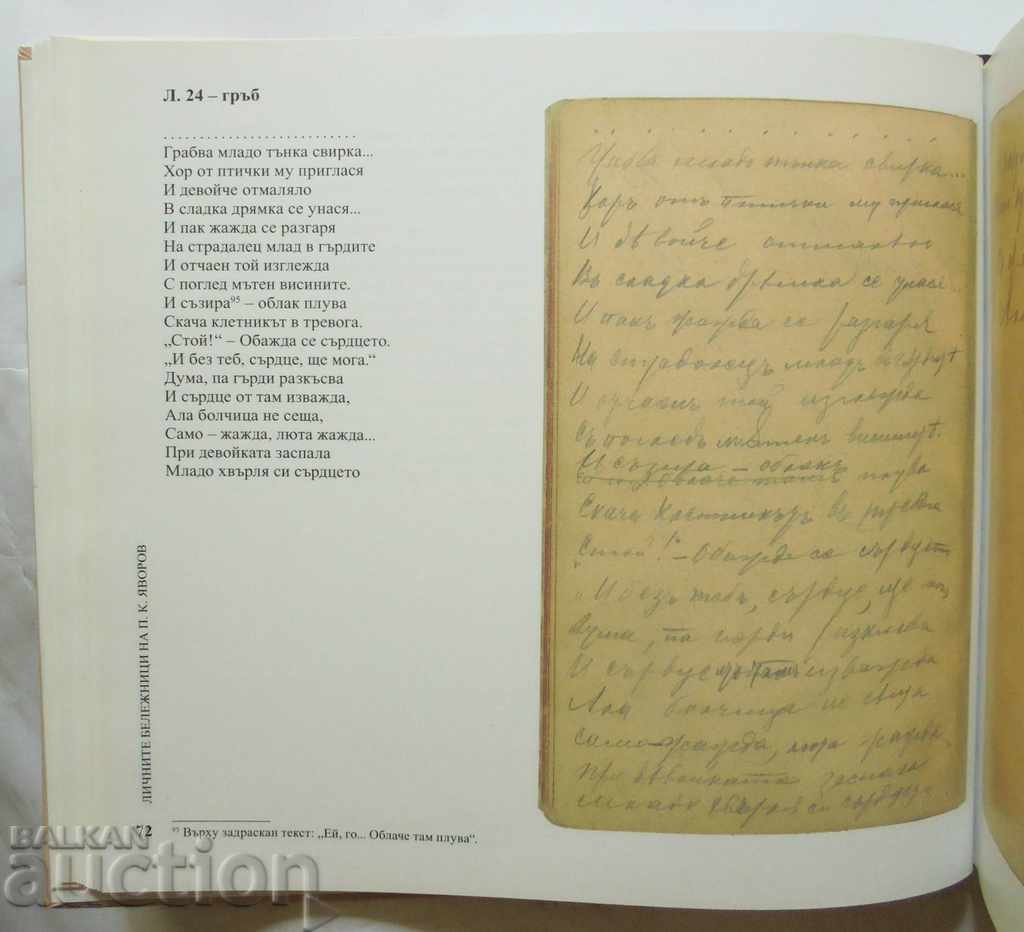 Л. 24 – гръб
. . . . . . . . . . . . . . . . . . . . . . . . . . .
Грабва младо тънка свирка...
Хор от птички му приглася
И девойче отмаляло
В сладка дрямка се унася...
И пак жажда се разгаря
На страдалец млад в гърдите
И отчаен той изглежда
С поглед мътен висините.
И съзира⁹⁵ – облак плува
Скача клетникът в тревога.
„Стой!“ – Обажда се сърдцето.
„И без теб, сърдце, ще мога.“
Дума, па гърди разкъсва
И сърдце от там изважда,
Ала болчица не сеща,
Само – жажда, люта жажда...
При девойката заспала
Младо хвърля си сърдцето
ЛИЧНИТЕ БЕЛЕЖНИЦИ НА П. К. ЯВОРОВ
72
⁹⁵ Върху задраскан текст: „Ей, го... Облаче там плува“.
. . . . . . . . . . . . .
младо тънка свирка...
Хоръ отъ птички му приглася
И дѣвойче
Въ сладка се унася...
И пакъ жажда се разгаря
На страдалецъ младъ
И отчаенъ той изглежда
Съ погледъ мътенъ
И съзира – облакъ
плува
Скача клетникътъ въ
„Стой!“ – Обажда се
„И безъ тебъ, сърдце, ще
Дума, па гърди
И сърдце отъ тамъ изважда
Ала болчица не сеща
Само – жажда, люта жажда
При девойката заспала
Младо хвърля си сърдцето
BALKAN
auction